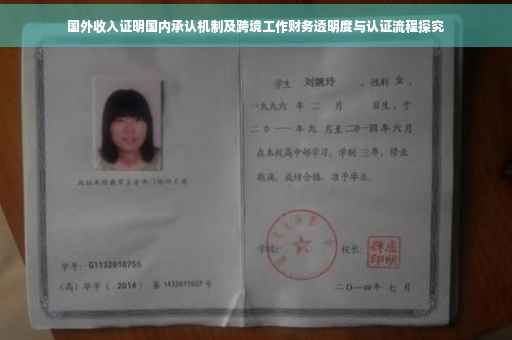 国外收入证明国内承认机制及跨境工作财务透明度与认证流程探究
学生 刘婉玲 ，性别 女 ，
一九九六 年 二 月 日生，于
二〇一一年九 月至二〇一四年 六 月
在本校高中部学习，学制 三年，修业
期满，成绩合格，准予毕业。
学号： G1132010755
（高）毕字（ 2014 ）第 1432011027 号
学校：
校长：
二〇一四年 七 月